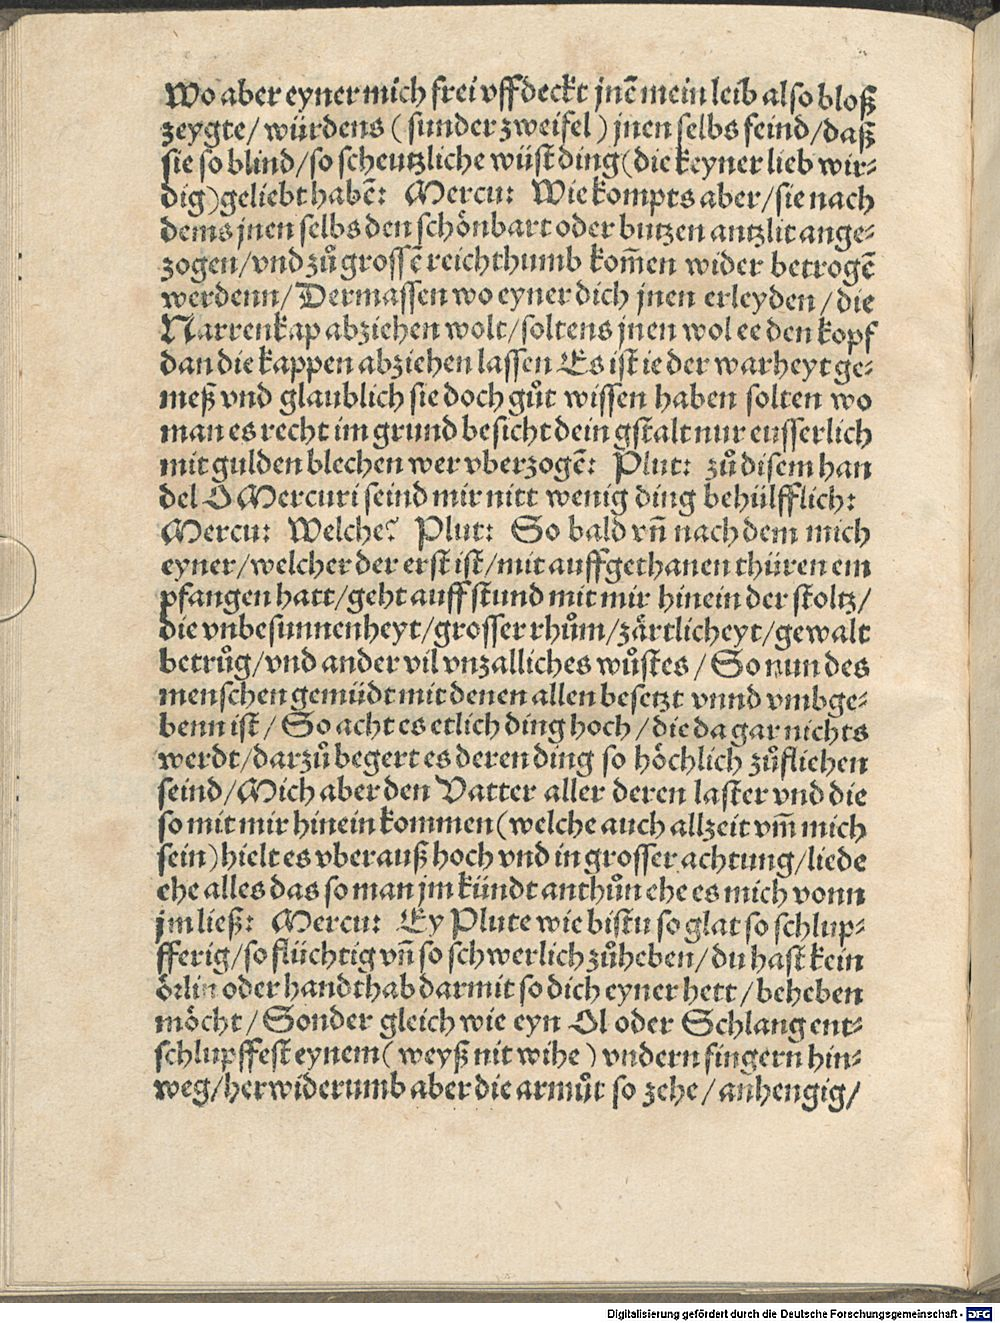 Wo aber eyner mich frei vffdeckt jnē mein leib also bloß
zeygte/ würdens ( sunder zweifel ) jnen selbs feind/daß
sie so blind/so scheutzliche wüst ding(die keyner lieb wir⸗
dig)geliebt habē: Mercu: Wie kompts aber/sie nach
dems jnen selbs den schönbart oder butzen antzlit ange⸗
zogen/vnd zů grossē reichthumb kom̄en wider betrogē
werdenn/Dermassen wo eyner dich jnen erleyden/die
Narrenkap abziehen wolt/soltens jnen wol ee den kopf
dan die kappen abziehen lassen Es ist ie der warheyt ge⸗
meß vnd glaublich sie doch gůt wissen haben solten wo
man es recht im grund besicht dein gstalt nur eusserlich
mit gulden blechen wer vberzogē: Plut: zů disem han
del O Mercuri seind mir nitt wenig ding behülfflich:
Mercu: Welche? Plut: So bald vn̄ nach dem mich
eyner/welcher der erst ist/mit auffgethanen thüren em
pfangen hatt/geht auff stund mit mir hinein der stoltz/
die vnbesunnenheyt/grosser rhům/zärtlicheyt/gewalt
betrůg/vnd ander vil vnzalliches wůstes/So nun des
menschen gemüdt mit denen allen besetzt vnnd vmbge⸗
benn ist/ So acht es etlich ding hoch/die da gar nichts
werdt/darzů begert es deren ding so höchlich zůfliehen
seind/Mich aber den Vatter aller deren laster vnd die
so mit mir hinein kommen(welche auch allzeit vm̄ mich
sein)hielt es vberauß hoch vnd in grosser achtung/liede
ehe alles das so man jm kündt anthůn ehe es mich vonn
jm ließ: Mercu: Ey Plute wie bistu so glat so schlup⸗
fferig/so flüchtig vn̄ so schwerlich zůheben/du hast kein
örlin oder handthab darmit so dich eyner hett/beheben
möcht/Sonder gleich wie eyn Ol oder Schlang ent⸗
schlupffest eynem( weyß nit wihe ) vndern fingern hin⸗
weg/herwiderumb aber die armůt so zehe/anhengig/
Digitalisierung gefördert durch die Deutsche Forschungsgemeinschaft - DFG